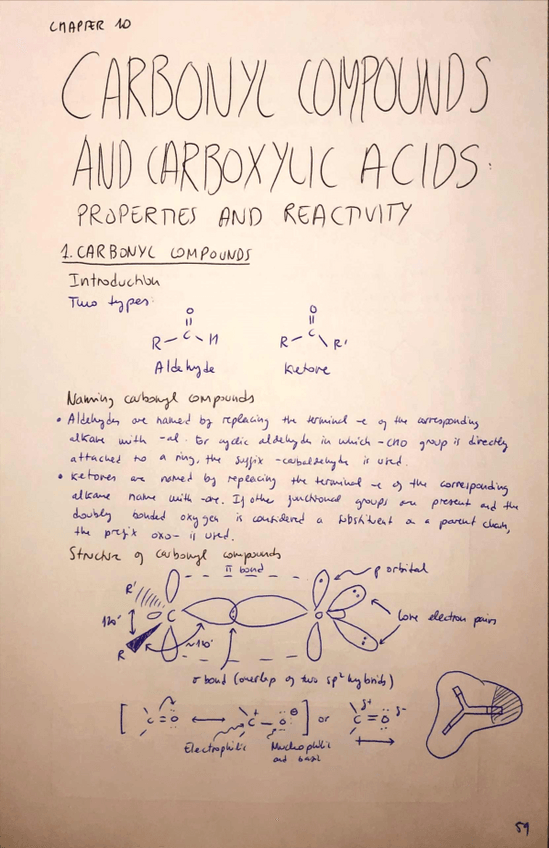 CHAPTER 10
CARBONYL COMPOUNDS
AND CARBOXYLIC ACIDS:
PROPERTIES AND REACTIVITY
1. CARBONYL COMPOUNDS
Introduction
Two types:
O O
R C H R C R'
Aldehyde Ketone
Naming carbonyl compounds
• Aldehydes are named by replacing the terminal -e of the corresponding
alkane with -al. For cyclic aldehyde in which -CHO group is directly
attached to a ring, the suffix -carbaldehyde is used.
• Ketones are named by replacing the terminal -e of the corresponding
alkane name with -one. If other functional groups are present and the
doubly bonded oxygen is considered a substituent on a parent chain,
the prefix oxo- is used.
Structure of carbonyl compounds
π bond p orbital
R' C O lone electron pairs
120°
R ~120°
σ bond (overlap of two sp² hybrids)
[ C=O ⟷ C⁺-O⊖ ] or Cδ+=Oδ-
Electrophilic Nucleophilic
and basic
59